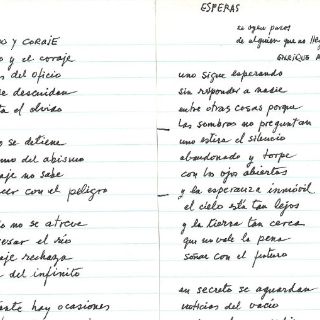 DO Y CORAJE
o y el coraje
s del oficio
e descuidan
a el olvido
o se detiene
mo del abismo
aje no sabe
cer con el peligro
o no se atreve
esar el río
aje rechaza
del infinito
ante hay ocasiones
ESPERAS
se oyen pasos
de alguien que no lle
ENRIQUE
uno sigue esperando
sin responder a nadie
entre otras cosas porque
las sombras no preguntan
uno estira el silencio
abandonado y torpe
con los ojos abiertos
y la esperanza inmóvil
el cielo está tan lejos
y la tierra tan cerca
que no vale la pena
soñar con el futuro
en secreto se aguardan
noticias del vacío